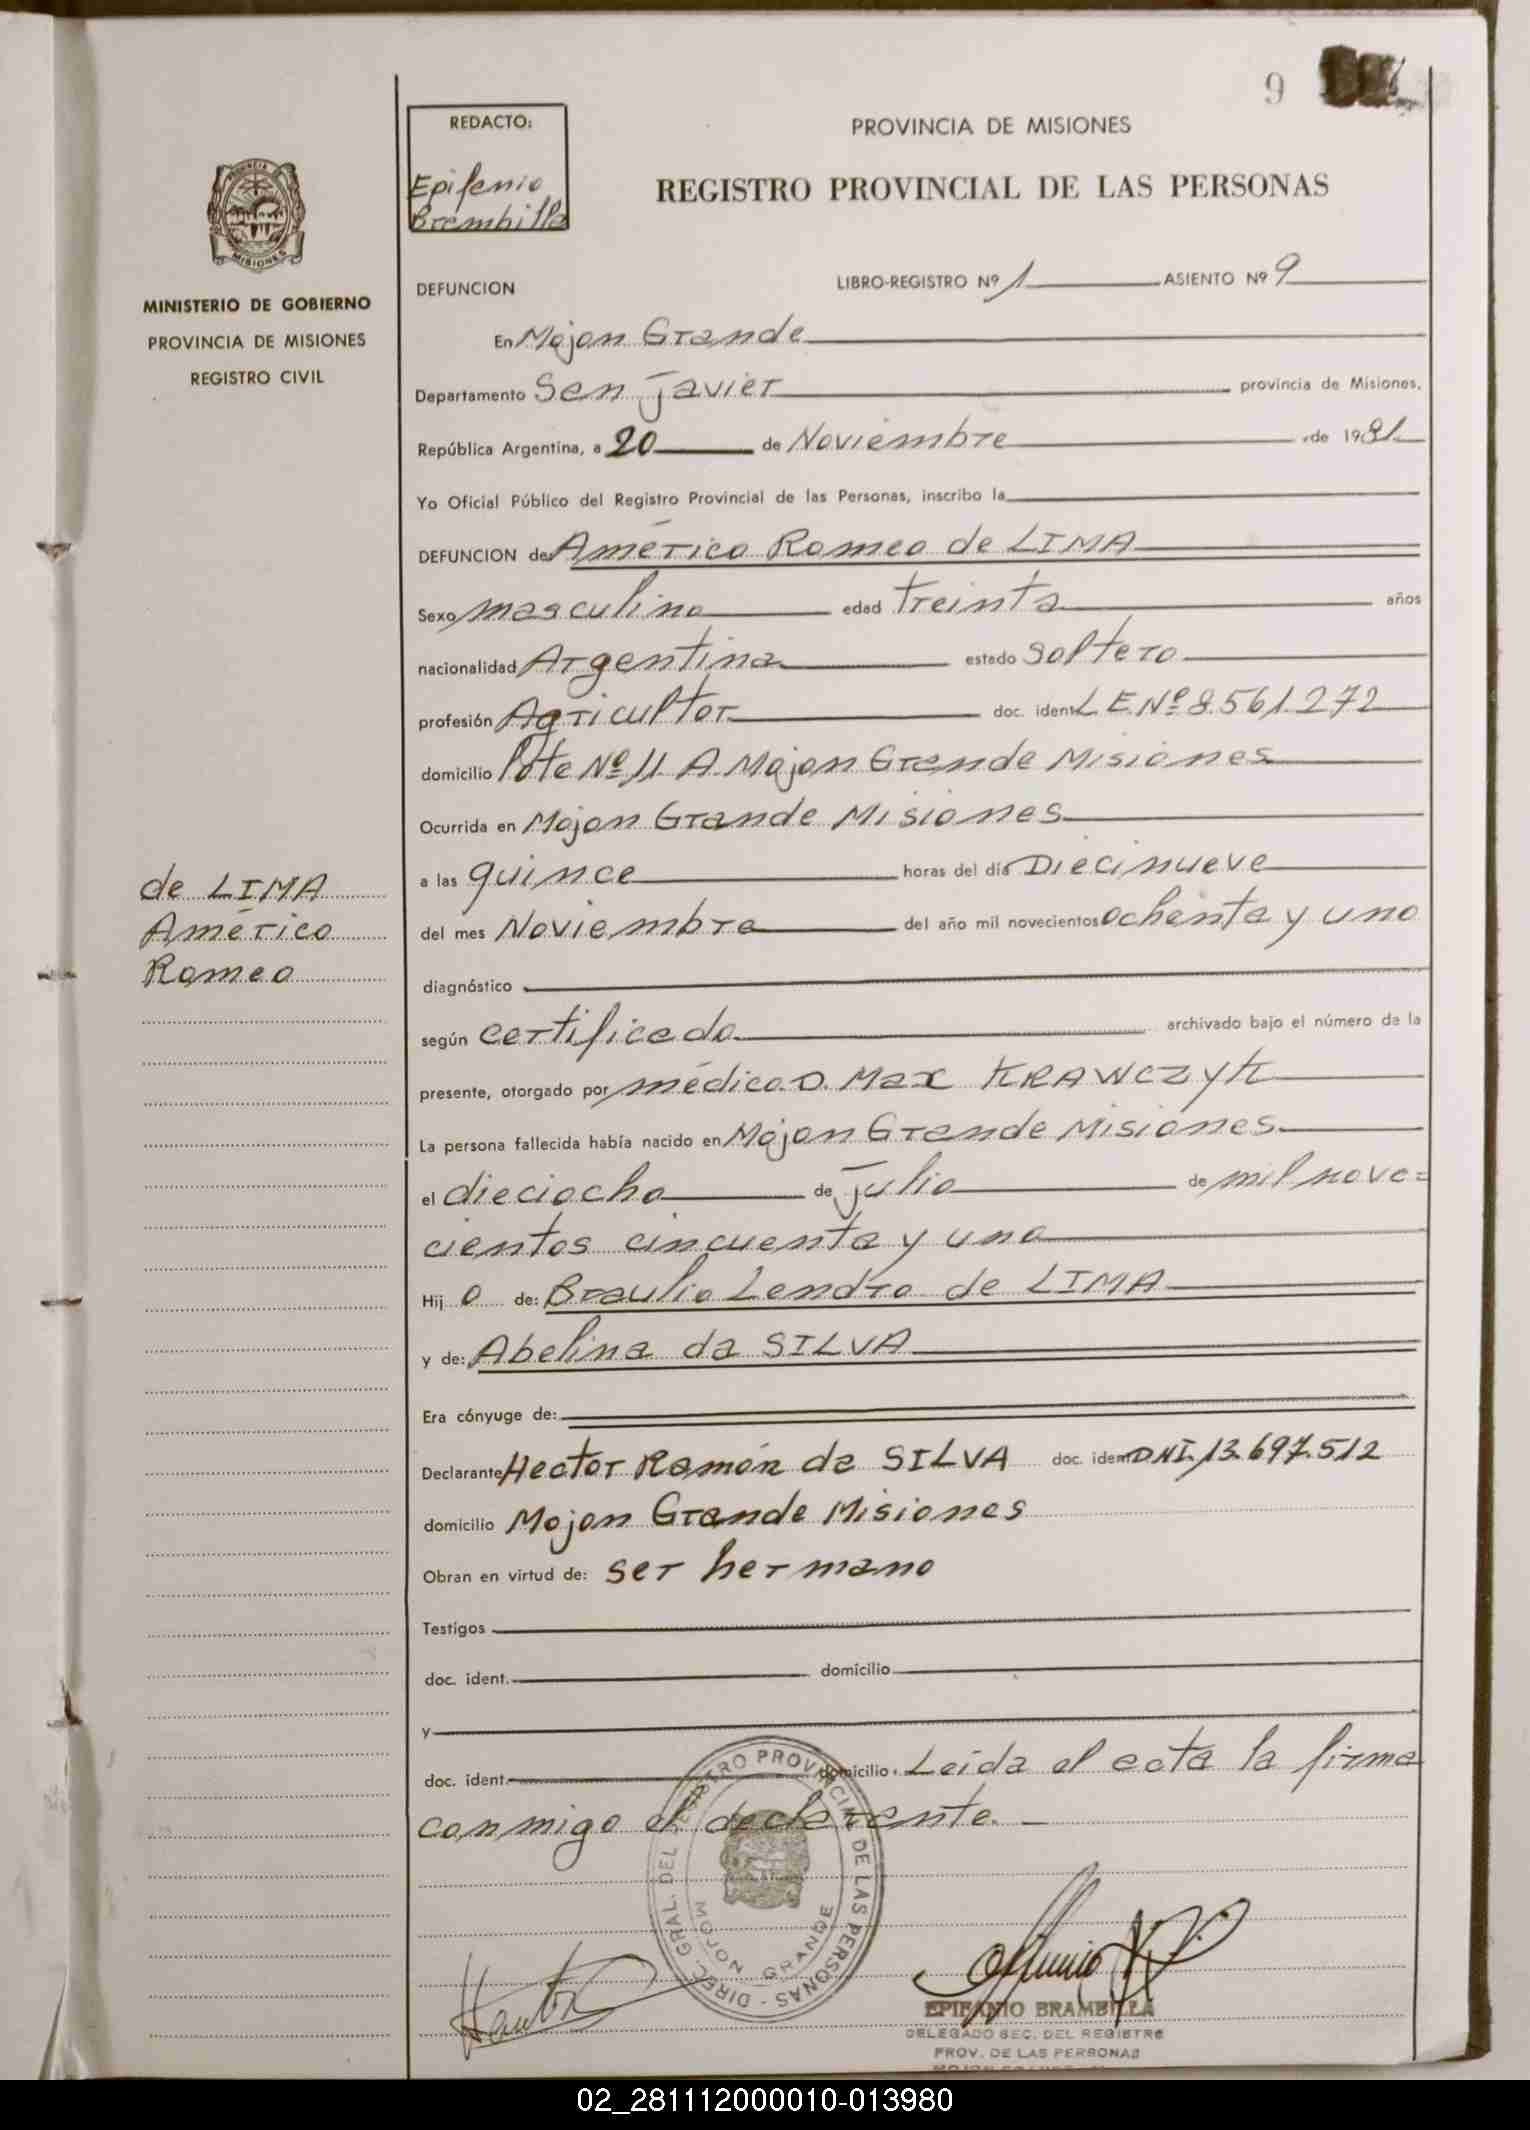 9
REDACTO:
Epifanio
Brambilla
PROVINCIA DE MISIONES
REGISTRO PROVINCIAL DE LAS PERSONAS
PROVINCIA DE
MISIONES
MINISTERIO DE GOBIERNO
PROVINCIA DE MISIONES
REGISTRO CIVIL
DEFUNCION LIBRO-REGISTRO Nº 1 ASIENTO Nº 9
En Mojon Grande
Departamento San Javier provincia de Misiones,
República Argentina, a 20 de Noviembre de 1981
Yo Oficial Público del Registro Provincial de las Personas, inscribo la
DEFUNCION de: Américo Romeo de LIMA
Sexo masculino edad treinta años
nacionalidad Argentina estado soltero
profesión Agricultor doc. ident. L.E.Nº 8.561.272
domicilio lote Nº 11 A Mojon Grande Misiones
Ocurrida en Mojon Grande Misiones
a las quince horas del día Diecinueve
del mes Noviembre del año mil novecientos ochenta y uno
diagnóstico
según certificado archivado bajo el número de la
presente, otorgado por médico D. Max KRAWCZYK
La persona fallecida había nacido en Mojon Grande Misiones
el dieciocho de Julio de mil nove=
cientos cincuenta y uno
Hij o de: Braulio Lendro de LIMA
y de: Abelina da SILVA
Era cónyuge de:
Declarante Hector Ramón da SILVA doc. ident. DNI. 13.697.512
domicilio Mojon Grande Misiones
Obran en virtud de: ser hermano
Testigos
doc. ident. domicilio
y
doc. ident. domicilio. Leída el acta la firma
conmigo el declarante.
de LIMA
Américo
Romeo
DIREC. GRAL. DEL REGISTRO PROVINCIAL DE LAS PERSONAS -
MOJON GRANDE
EPIFANIO BRAMBILLA
DELEGADO SEC. DEL REGISTRO
PROV. DE LAS PERSONAS
02_281112000010-013980